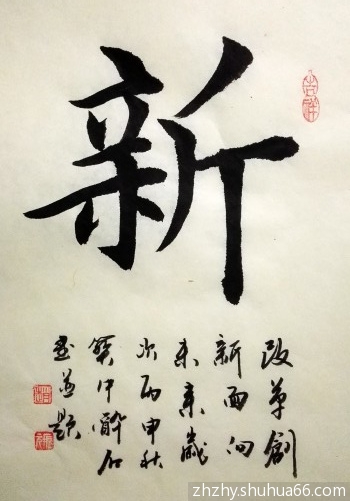 新
吉祥
改革創
新面向
未来歲
次丙申秋
中醉石
並題
zhzhy.shuhua66.com